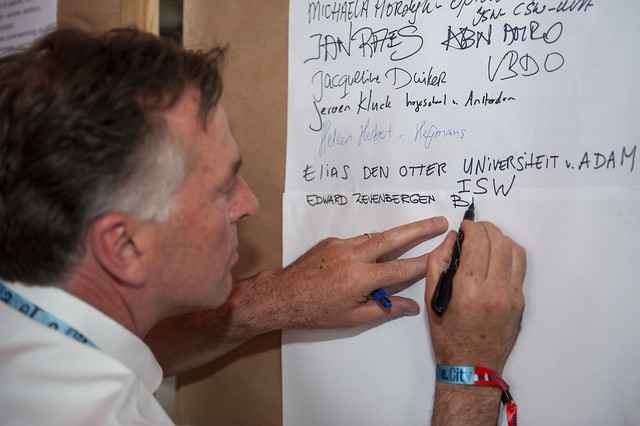 MICHAELA HORDIJK
JAN RAES ABN AMRO
VBDO
Jacqueline Duiker
Jeroen Kluck hogeschool v. Amsterdam
Heleen Herbert - Heijmans
ELIAS DEN OTTER UNIVERSITEIT v. ADAM
ISW
EDWARD ZEVENBERGEN B
e.City